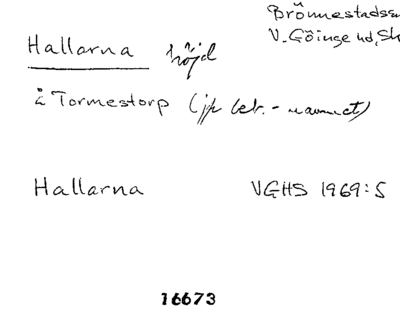 Brönnestads
V. Göinge hd, Sk
Hallarna höjd
å Tormestorp (jfr bet. - namnet)
Hallarna VGHS 1969:5
16673